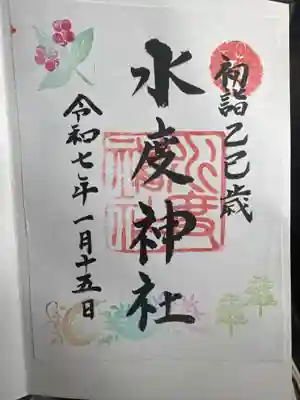 初詣乙巳歳
水度神社
水度神社
令和七年一月十五日